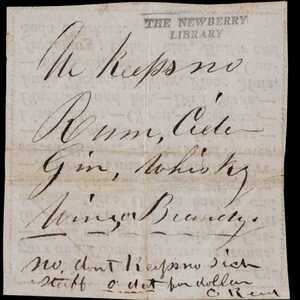 THE NEWBERRY
LIBRARY
We Keeps no
Rum, Cider
Gin, Whisky
Wine, or Brandy.
no, dont Keeps no sich
stuff o dat for dollar